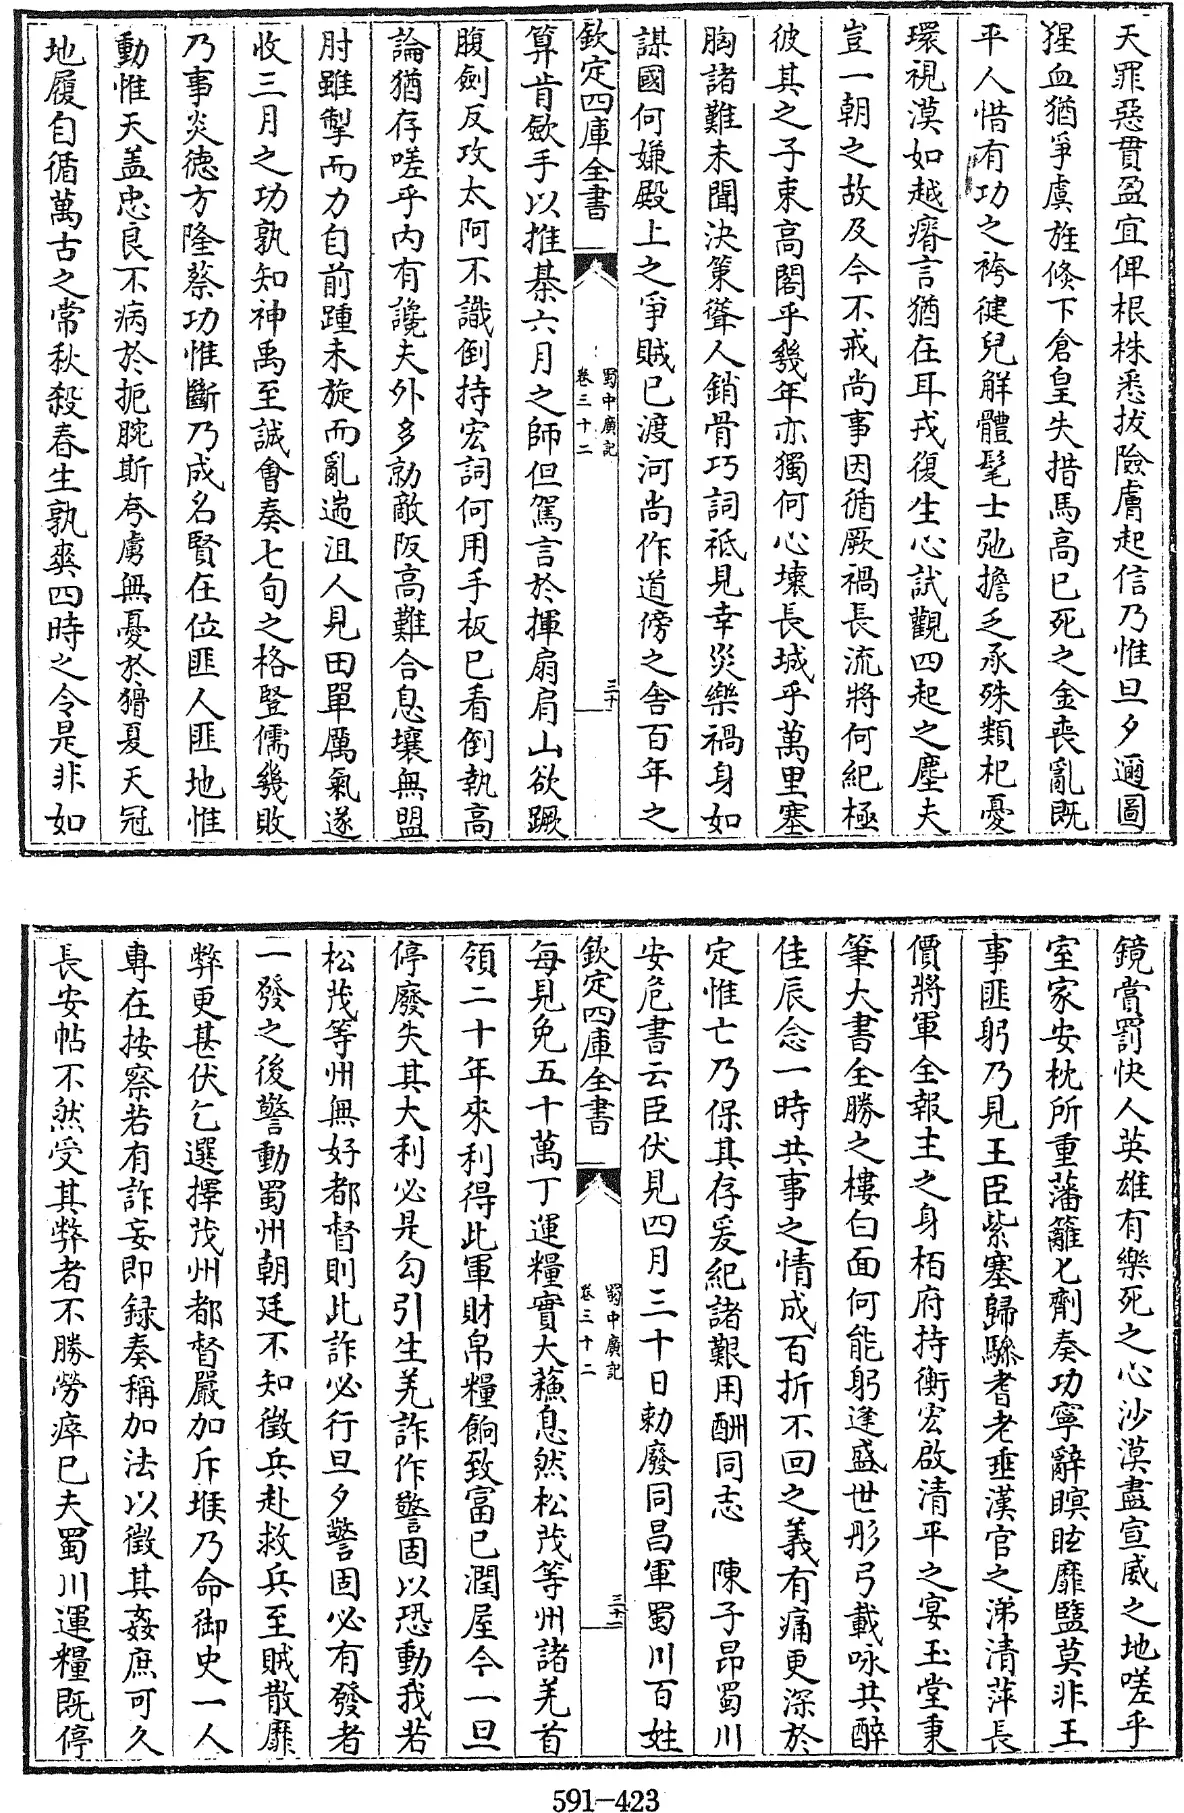 天罪惡貫盈宜俾根株悉拔險膚起信乃惟旦夕邇圖
猩血猶爭虞旌倏下倉皇失措馬高已死之金喪亂既
平人惜有功之袴健兒解體髦士弛擔乏承殊類杞憂
環視漠如越瘠言猶在耳戎復生心試觀四起之塵夫
豈一朝之故及今不戒尚事因循厥禍長流將何紀極
彼其之子束高閣乎幾年亦獨何心壞長城乎萬里塞
胸諸難未聞決策聳人銷骨巧詞祗見幸災樂禍身如
謀國何嫌殿上之爭賊已渡河尚作道傍之舍百年之
欽定四庫全書
蜀中廣記
卷三十二
三十
算肯歛手以推棊六月之師但駕言於揮扇肩山欲蹶
腹劍反攻太阿不識倒持宏詞何用手板已看倒執高
論猶存嗟乎內有讒夫外多勍敵阪高難合息壤無盟
肘雖掣而力自前踵未旋而亂遄沮人見田單厲氣遂
收三月之功孰知神禹至諴會奏七旬之格豎儒幾敗
乃事炎德方隆蔡功惟斷乃成名賢在位匪人匪地惟
動惟天盖忠良不病於扼腕斯夸虜無憂於猾夏天冠
地履自循萬古之常秋殺春生孰爽四時之令是非如
鏡賞罰快人英雄有樂死之心沙漠盡宣威之地嗟乎
室家安枕所重藩籬匕劑奏功寧辭瞑眩靡盬莫非王
事匪躬乃見王臣紫塞歸驂耆老垂漢官之涕清萍長
價將軍全報主之身栢府持衡宏啟清平之宴玉堂秉
筆大書全勝之樓白面何能躬逢盛世彤弓載咏共醉
佳辰念一時共事之情成百折不回之義有痛更深於
定惟亡乃保其存爰紀諸艱用酬同志　陳子昂蜀川
安危書云臣伏見四月三十日勅廢同昌軍蜀川百姓
欽定四庫全書
蜀中廣記
卷三十二
三十一
每見免五十萬丁運糧實大蘓息然松茂等州諸羌首
領二十年來利得此軍財帛糧餉致富已潤屋今一旦
停廢失其大利必是勾引生羌詐作警固以恐動我若
松茂等州無好都督則此詐必行旦夕警固必有發者
一發之後警動蜀州朝廷不知徵兵赴救兵至賊散靡
弊更甚伏乞選擇茂州都督嚴加斥堠乃命御史一人
專在按察若有詐妄即録奏稱加法以徵其姦庶可久
長安帖不然受其弊者不勝勞瘁已夫蜀川運糧既停
591-423